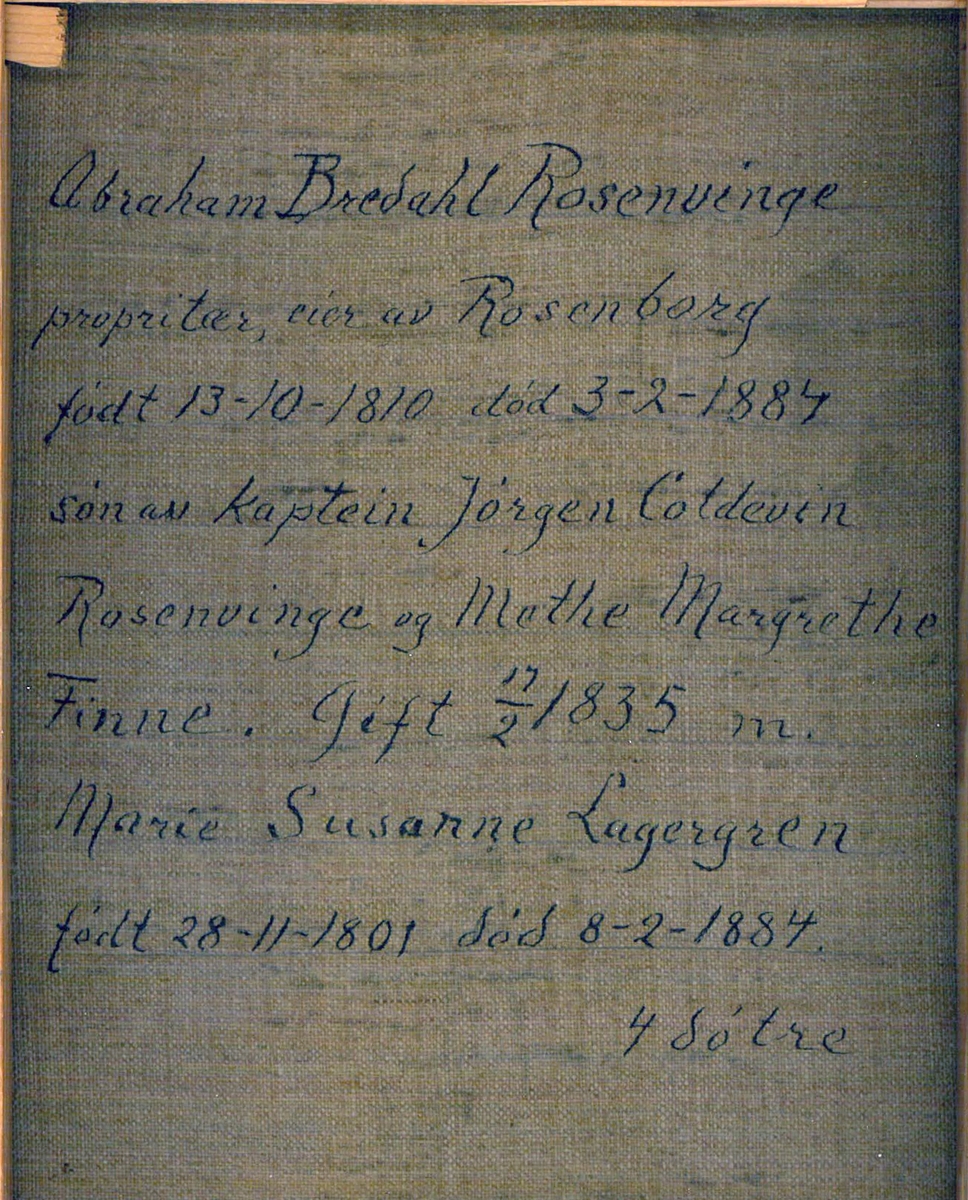 Abraham Bredahl Rosenvinge
propritær, eier av Rosenborg
født 13-10-1810 død 3-2-1884
søn av Kaptein Jørgen Coldevin
Rosenvinge og Methe Margrethe
Finne. Gift 17/2 1835 m.
Marie Susanne Lagergren
født 28-11-1801 død 8-2-1884.
4 døtre